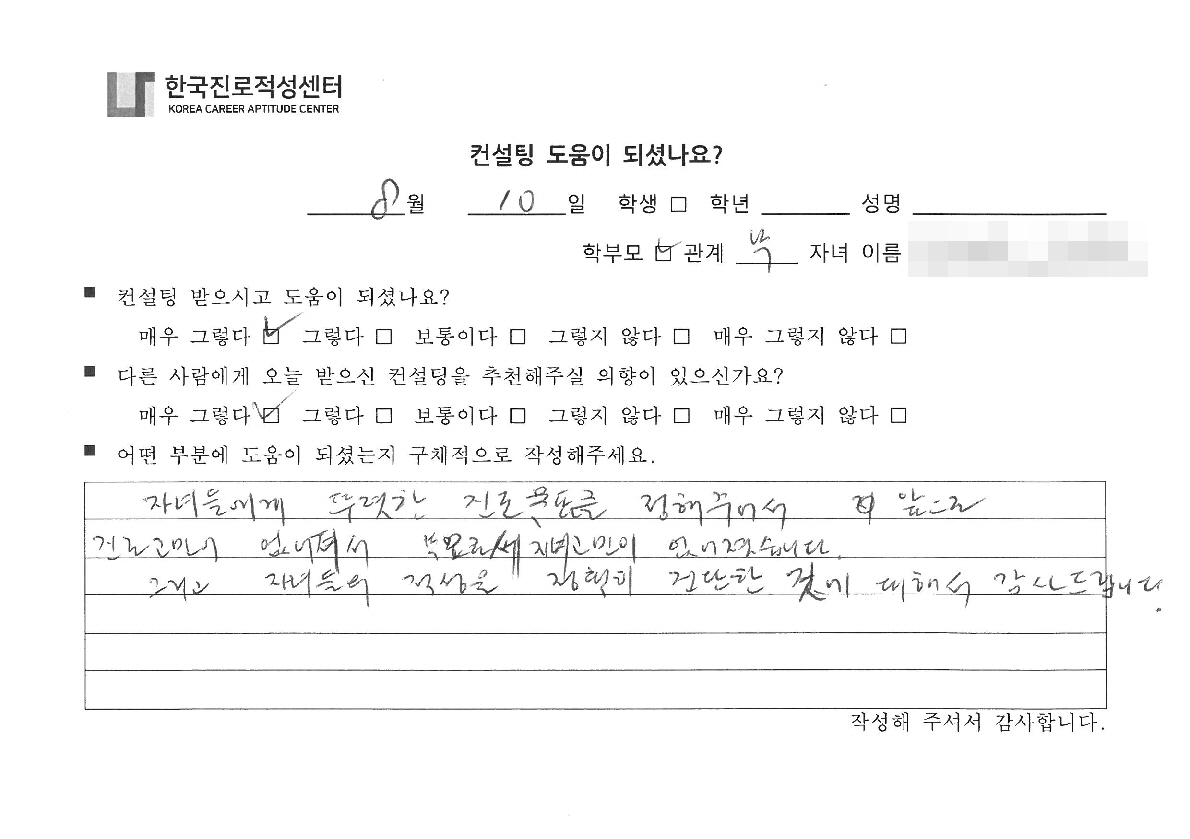 한국진로적성센터
KOREA CAREER APTITUDE CENTER
컨설팅 도움이 되셨나요?
8월 10일 학생 □ 학년 성명
학부모 ☑ 관계 부 자녀 이름
■ 컨설팅 받으시고 도움이 되셨나요?
매우 그렇다 ☑ 그렇다 □ 보통이다 □ 그렇지 않다 □ 매우 그렇지 않다 □
■ 다른 사람에게 오늘 받으신 컨설팅을 추천해주실 의향이 있으신가요?
매우 그렇다 ☑ 그렇다 □ 보통이다 □ 그렇지 않다 □ 매우 그렇지 않다 □
■ 어떤 부분에 도움이 되셨는지 구체적으로 작성해주세요.
자녀들에게 뚜렷한 진로 목표를 정해주어서 앞으로
진로고민이 없어져서 부모로써 자녀고민이 없어졌습니다.
그리고 자녀들의 적성을 정확히 진단한 것에 대해서 감사드립니다.
작성해 주셔서 감사합니다.